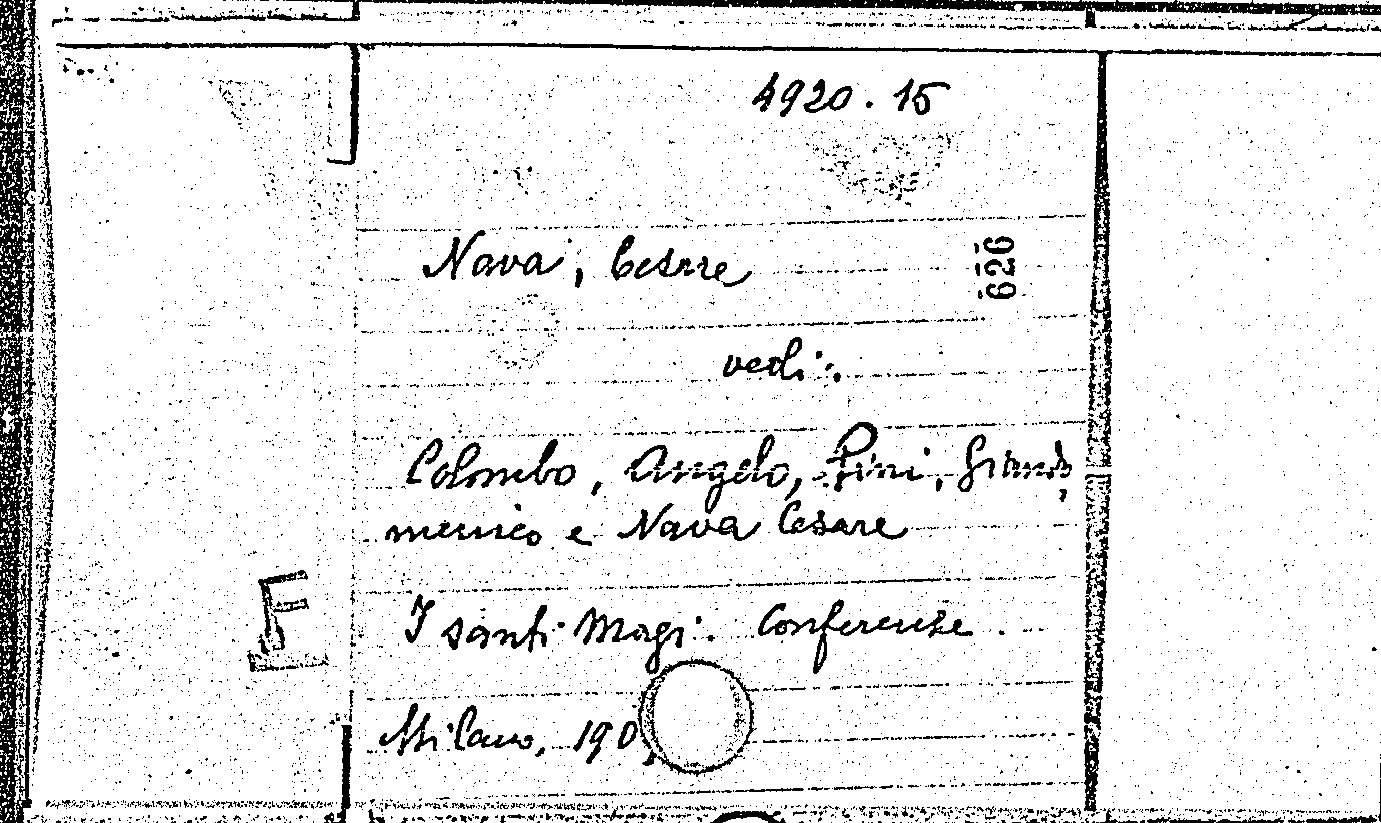 4920.15
Nava, Cesare
626
vedi:
Colombo, Angelo, Rini, Giando,
menico e Nava Cesare
I santi Magi. Conferenze.
Milano, 190
F